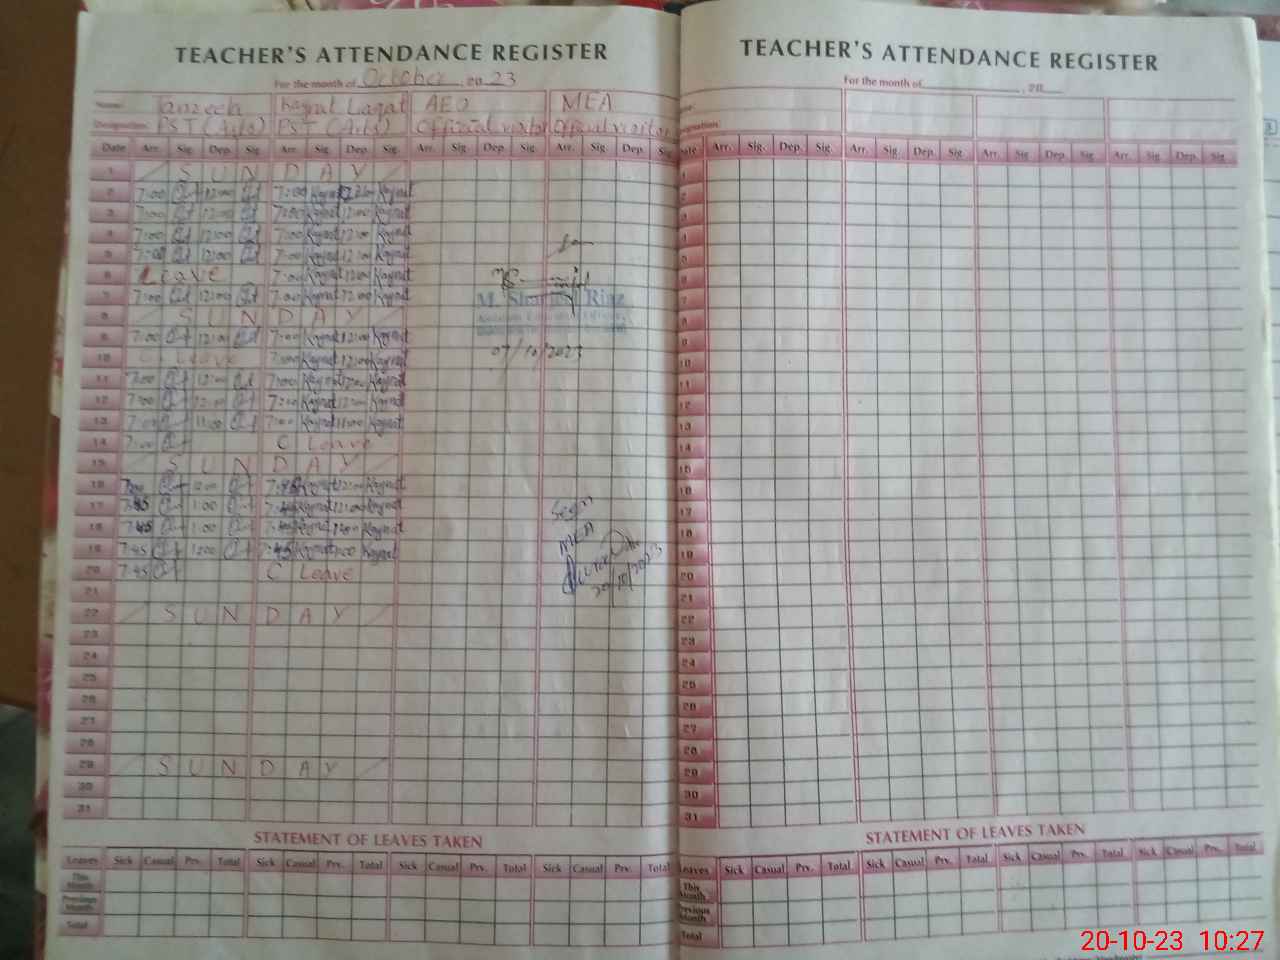 TEACHER'S ATTENDANCE REGISTER
For the month of October, 2023
Name: Tanzeela Kaynat Laqat AEO MEA
Designation: PST (Arts) PST (Arts) Official visitor Official visitor
Date Arr. Sig. Dep. Sig. Arr. Sig. Dep. Sig. Arr. Sig. Dep. Sig. Arr. Sig. Dep. Sig.
1 SUNDAY
2 7:00 12:00 7:00 Kaynat 12:00 Kaynat
3 7:00 12:00 7:00 Kaynat 12:00 Kaynat
4 7:00 12:00 7:00 Kaynat 12:00 Kaynat
5 7:00 12:00 7:00 Kaynat 12:00 Kaynat
6 Leave 7:00 Kaynat 12:00 Kaynat
7 7:00 12:00 7:00 Kaynat 12:00 Kaynat
8 SUNDAY
9 7:00 12:00 7:00 Kaynat 12:00 Kaynat
10 C Leave 7:00 Kaynat 12:00 Kaynat
11 7:00 12:00 7:00 Kaynat 12:00 Kaynat
12 7:00 12:00 7:00 Kaynat 12:00 Kaynat
13 7:00 11:00 7:00 Kaynat 11:00 Kaynat
14 7:00 C Leave
15 SUNDAY
16 7:00 12:00 Kaynat 12:00 Kaynat
17 7:45 1:00 7:45 Kaynat Kaynat
18 7:45 1:00 7:45 Kaynat Kaynat
19 7:45 1:00 7:45 Kaynat 1:00 Kaynat
20 7:45 C Leave
21
22 SUNDAY
23
24
25
26
27
28
29 SUNDAY
30
31
M. Riaz
07/10/2023
Seen
MEA
20/10/2023
STATEMENT OF LEAVES TAKEN
Leaves Sick Casual Prv. Total Sick Casual Prv. Total Sick Casual Prv. Total Sick Casual Prv. Total
This Month
Previous Month
Total
TEACHER'S ATTENDANCE REGISTER
For the month of , 20
Date Arr. Sig. Dep. Sig. Arr. Sig. Dep. Sig. Arr. Sig. Dep. Sig. Arr. Sig. Dep. Sig.
1
2
3
4
5
6
7
8
9
10
11
12
13
14
15
16
17
18
19
20
21
22
23
24
25
26
27
28
29
30
31
STATEMENT OF LEAVES TAKEN
Leaves Sick Casual Prv. Total Sick Casual Prv. Total Sick Casual Prv. Total Sick Casual Prv. Total
This Month
Previous Month
Total
20-10-23 10:27